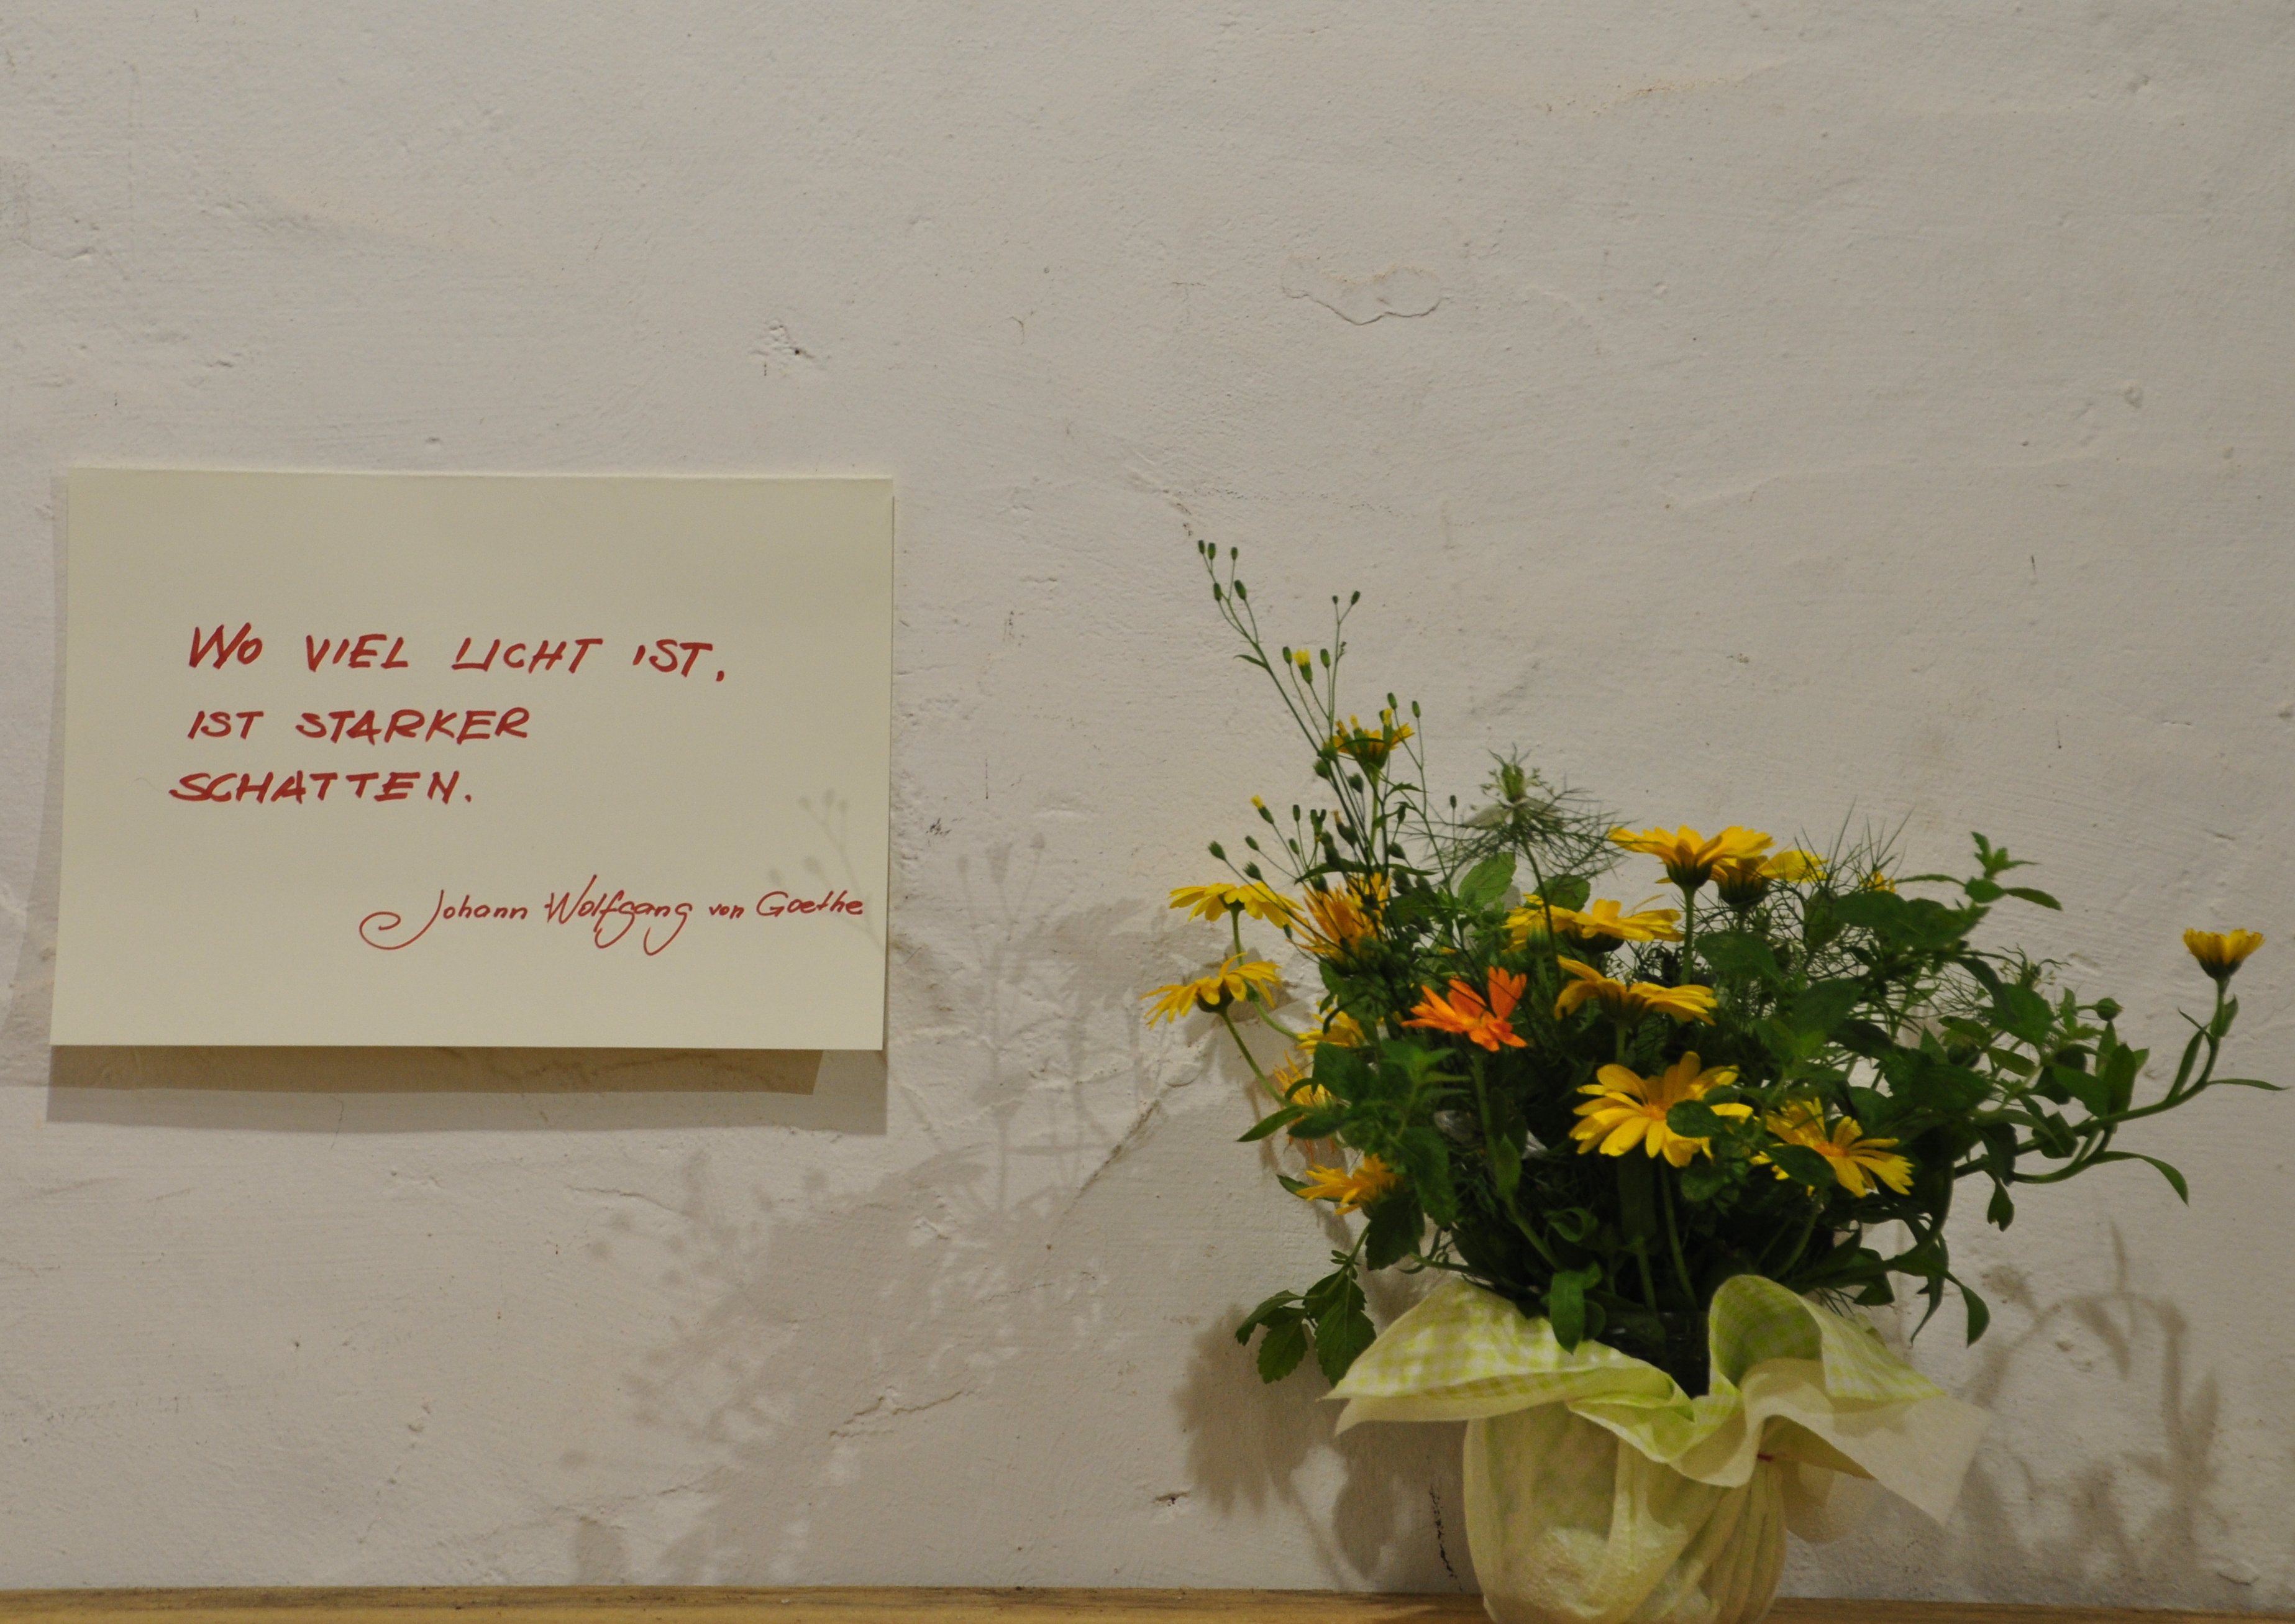 WO VIEL LICHT IST,
IST STARKER
SCHATTEN.
Johann Wolfgang von Goethe